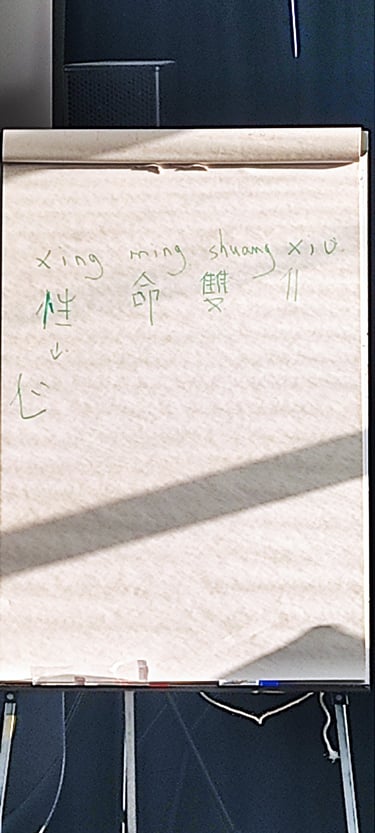 xing ming shuang xiu
性 命 雙
↓